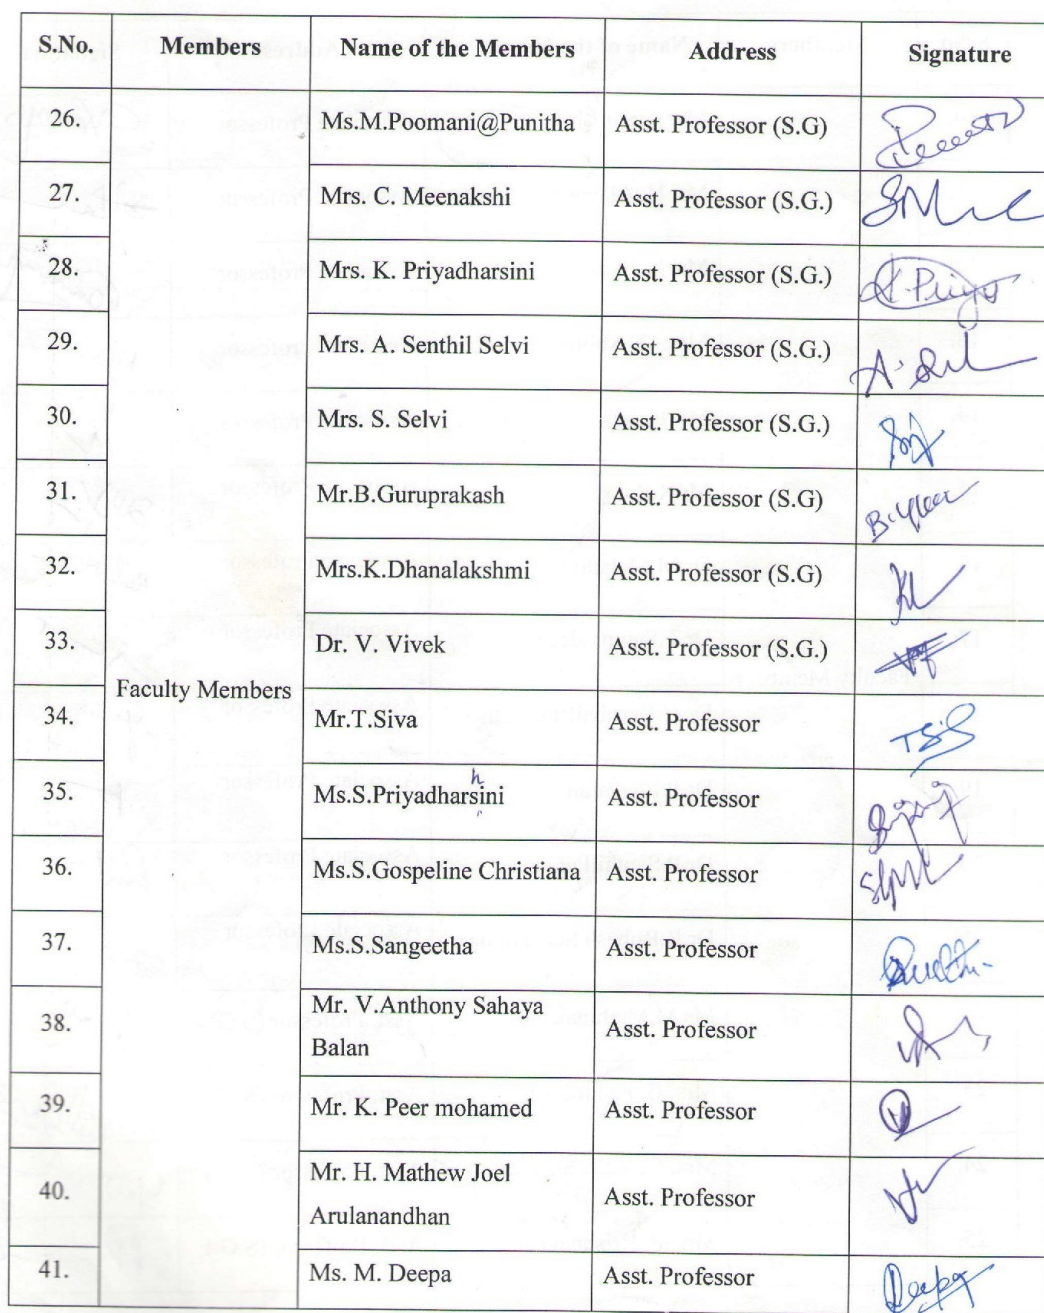 S.No. Members Name of the Members Address Signature
26. Ms.M.Poomani@Punitha Asst. Professor (S.G)
27. Mrs. C. Meenakshi Asst. Professor (S.G.)
28. Mrs. K. Priyadharsini Asst. Professor (S.G.) K.Priya
29. Mrs. A. Senthil Selvi Asst. Professor (S.G.)
30. Mrs. S. Selvi Asst. Professor (S.G.)
31. Mr.B.Guruprakash Asst. Professor (S.G)
32. Mrs.K.Dhanalakshmi Asst. Professor (S.G)
33. Dr. V. Vivek Asst. Professor (S.G.)
Faculty Members
34. Mr.T.Siva Asst. Professor
h
35. Ms.S.Priyadharsini Asst. Professor
36. Ms.S.Gospeline Christiana Asst. Professor
37. Ms.S.Sangeetha Asst. Professor
38. Mr. V.Anthony Sahaya Asst. Professor
Balan
39. Mr. K. Peer mohamed Asst. Professor
40. Mr. H. Mathew Joel Asst. Professor
Arulanandhan
41. Ms. M. Deepa Asst. Professor Deepa